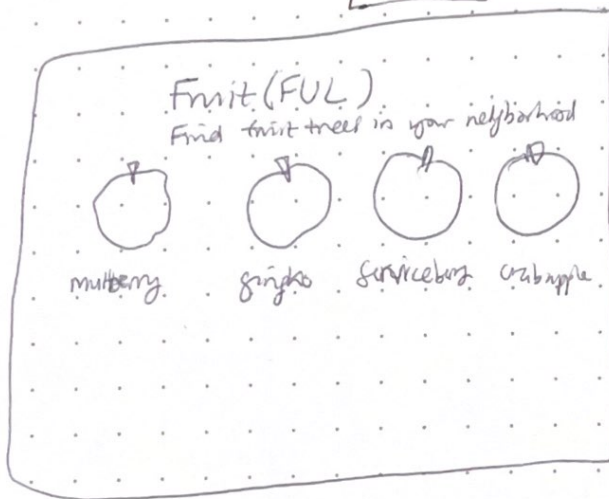 Fruit (FUL)
Find fruit trees in your neighborhood
mulberry gingko serviceberry crabapple